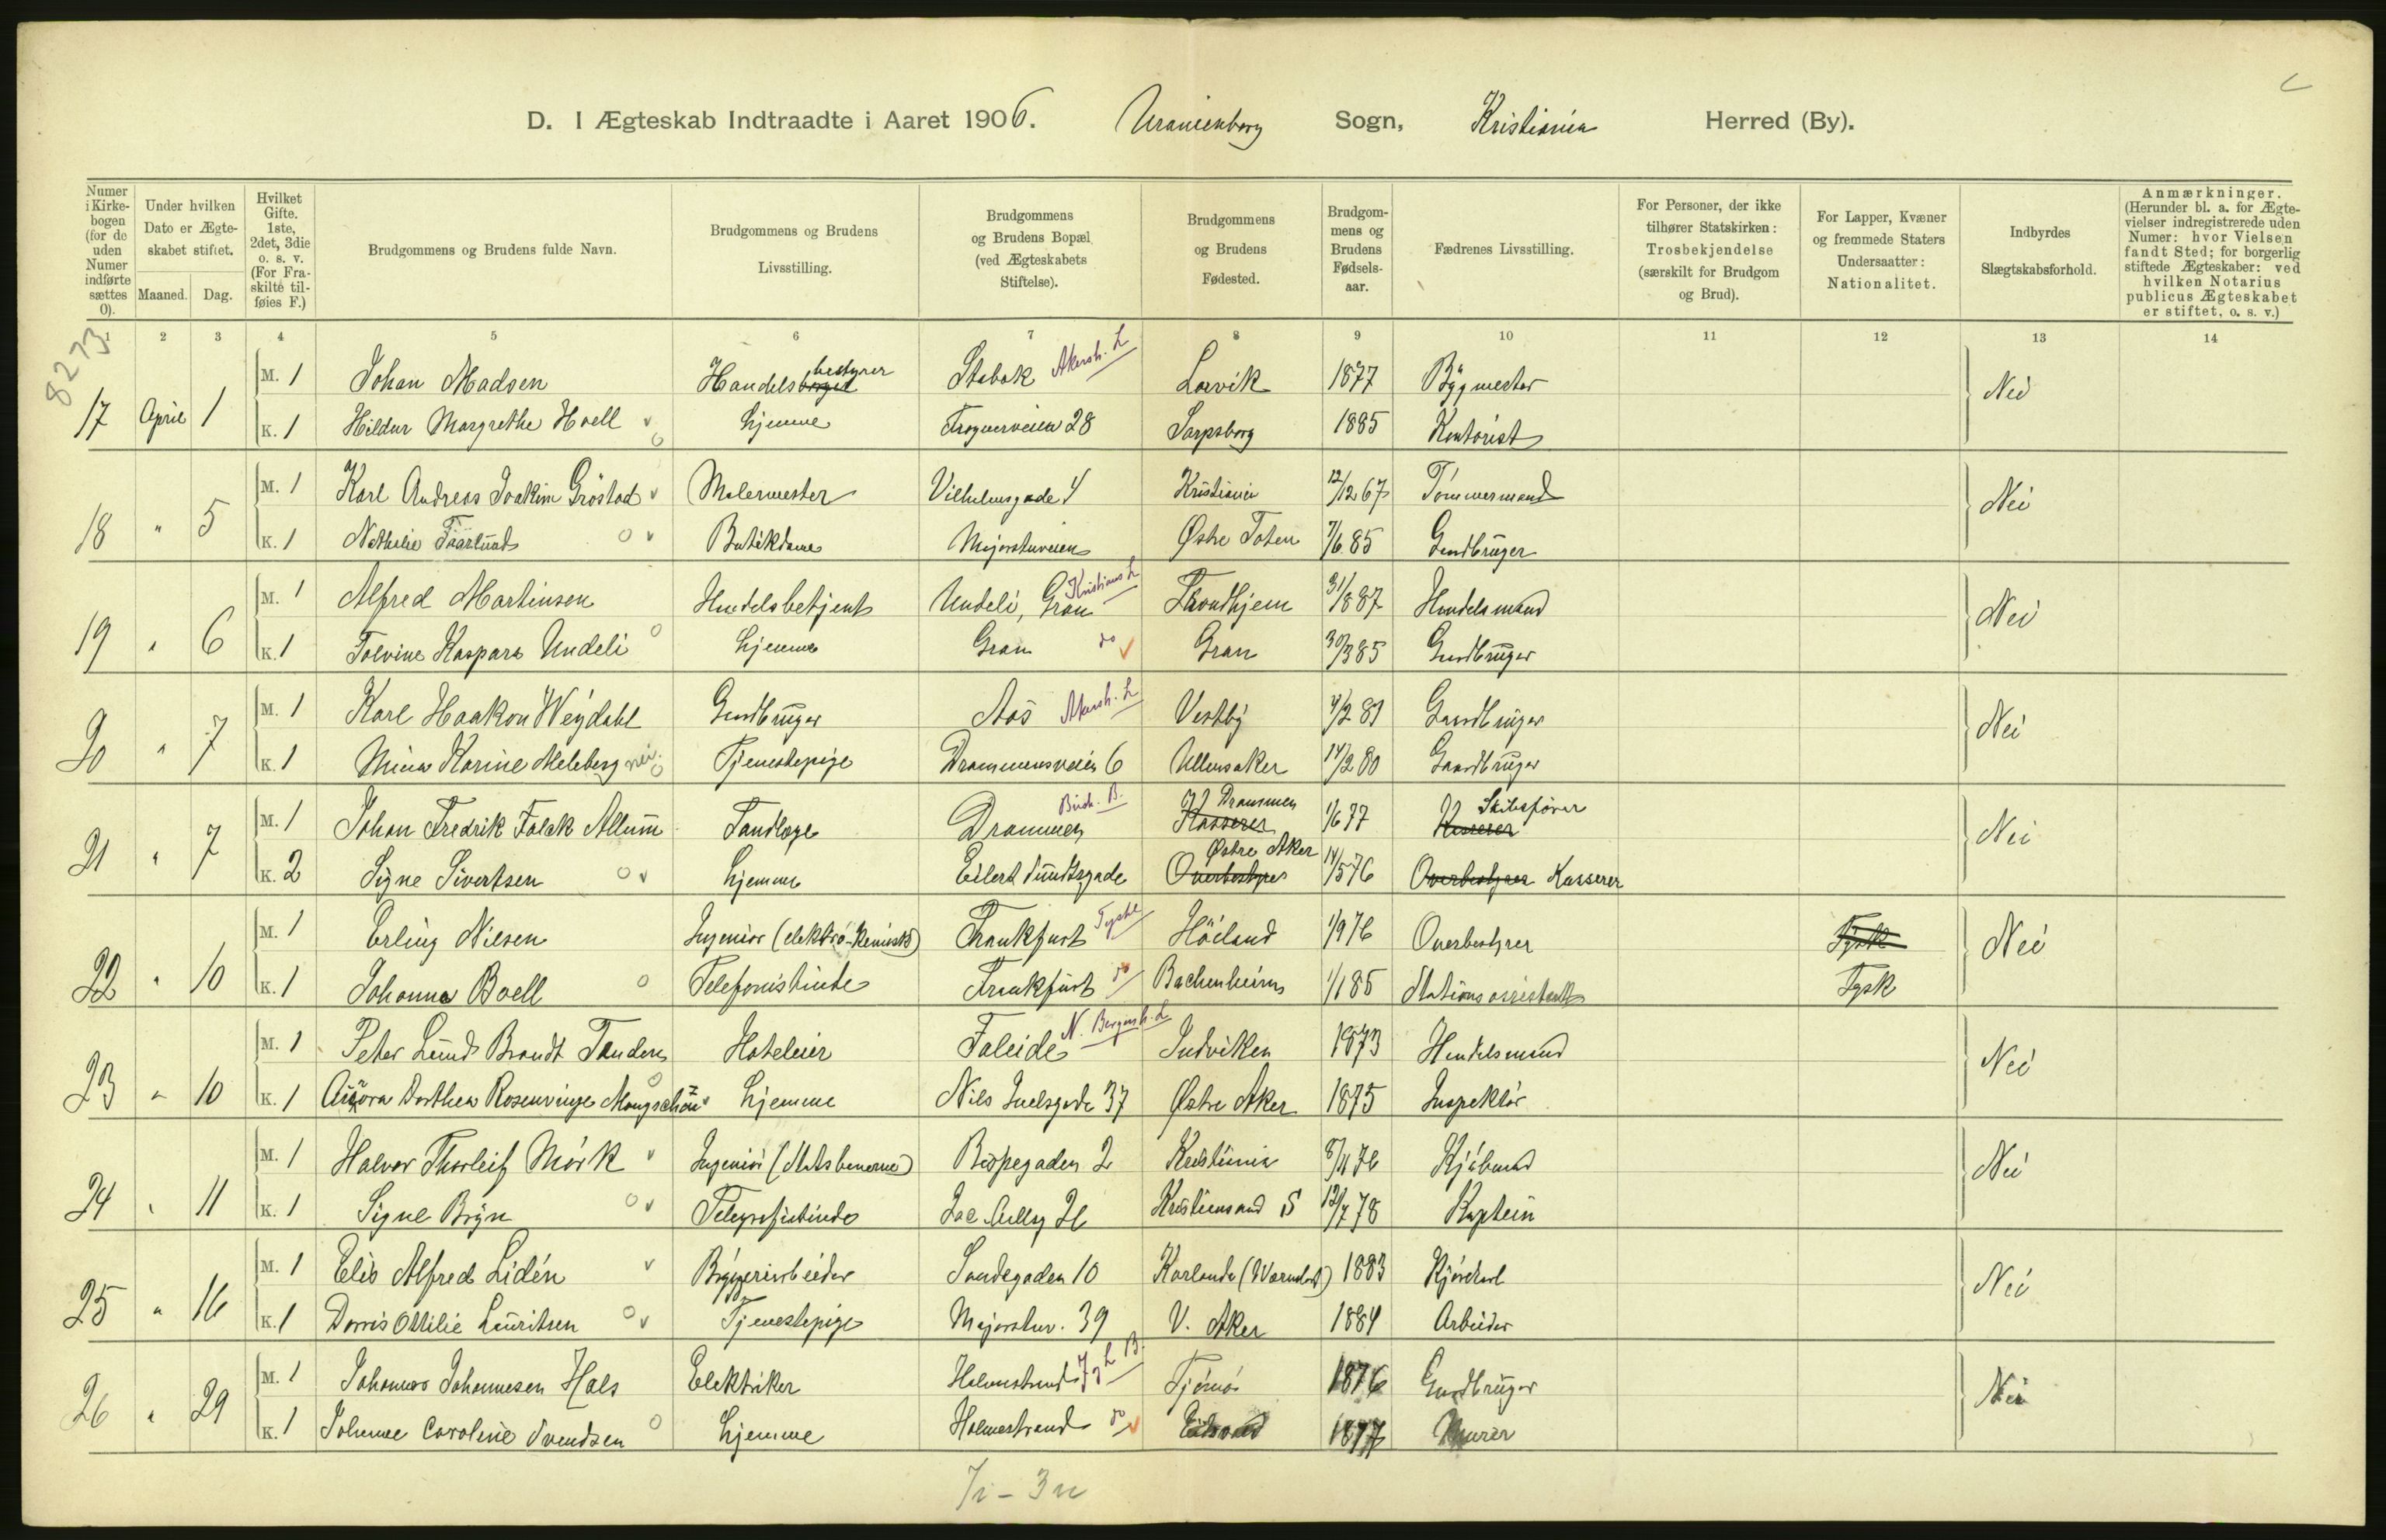 D. I Ægteskab Indtraadte i Aaret 1906. Uranienborg Sogn, Kristiania Herred (By).
Numer i Kirkebogen (for de uden Numer indførte sættes 0).
Under hvilken Dato er Ægteskabet stiftet.
Maaned. Dag.
Hvilket Gifte. 1ste, 2det, 3die o. s. v. (For Fraskilte tilføies F.)
Brudgommens og Brudens fulde Navn.
Brudgommens og Brudens Livsstilling.
Brudgommens og Brudens Bopæl (ved Ægteskabets Stiftelse).
Brudgommens og Brudens Fødested.
Brudgommens og Brudens Fødselsaar.
Fædrenes Livsstilling.
For Personer, der ikke tilhører Statskirken: Trosbekjendelse (særskilt for Brudgom og Brud).
For Lapper, Kvæner og fremmede Staters Undersaatter: Nationalitet.
Indbyrdes Slægtskabsforhold.
Anmærkninger. (Herunder bl. a. for Ægtevielser indregistrerede uden Numer: hvor Vielsen fandt Sted; for borgerlig stiftede Ægteskaber: ved hvilken Notarius publicus Ægteskabet er stiftet, o. s. v.)
1 2 3 4 5 6 7 8 9 10 11 12 13 14
8273
M. 1 Johan Madsen Handelsbestyrer Stabæk Akersh. L Larvik 1877 Bygmester
17 April 1 K. 1 Hildur Margrethe Hoell hjemme Frognerveien 28 Sarpsborg 1885 Kontorist Nei
M. 1 Karl Andreas Joakim Gröstad Malermester Vilhelmsgade 4 Kristiania 12/12 67 Tömmermand
18 " 5 K. 1 Nathalie Faarlund Butikdame Majorstuveien Østre Toten 7/6 85 Gaardbruger Nei
M. 1 Alfred Martinsen Handelsbetjent Undeli, Gran Kristians L Trondhjem 31/8 87 Handelsmand
19 " 6 K. 1 Tolvine Kaspara Undeli hjemme Gran do Gran 30/3 85 Gaardbruger Nei
M. 1 Karl Haakon Weydahl Gaardbruger Aas Akersh. L Vestby 4/2 81 Gaardbruger
20 " 7 K. 1 Mina Karine Meleberg Tjenestepige Drammensveien 6 Ullensaker 14/2 80 Gaardbruger Nei
M. 1 Johan Fredrik Falck Allum Tandlæge Drammen Busk. B. Kasserer Drammen 1/6 77 Kasserer Skibsfører
21 " 7 K. 2 Signe Sivertsen hjemme Eilert Sundtsgade Overbestyrer Østre Aker 14/5 76 Overbestyrer Kasserer Nei
M. 1 Erling Nilsen Ingeniør (elektro-kemisk) Frankfurt Tyskl Höland 1/9 76 Overbestyrer Tysk
22 " 10 K. 1 Johanna Boell Telefonistinde Frankfurt do Bachenheim 1/1 85 Stationsassistent Tysk Nei
M. 1 Peter Lund Brandt Tenden Hoteleier Faleide N. Bergenh. L Indviken 1873 Handelsmand
23 " 10 K. 1 Aurora Dorthea Rosenvinge Mangschou hjemme Nils Juelsgade 37 Østre Aker 1875 Inspektør Nei
M. 1 Halvor Thorleif Mörk Ingeniør (Statsbanerne) Bispegaden 2 Kristiania 8/11 76 Kjöbmand
24 " 11 K. 1 Signe Bryn Telegrafistinde Jac. Aalls g 26 Kristiansand S 12/7 78 Kaptein Nei
M. 1 Elis Alfred Lidén Bryggeriarbeider Sandegaden 10 Karlanda (Wærmland) 1883 Kjörekarl
25 " 16 K. 1 Dorris Ottilie Lauritsen Tjenestepige Majorstuv. 39 V. Aker 1884 Arbeider Nei
M. 1 Johannes Johannesen Hals Elektriker Holmestrand J. L B. Tjömö 1876 Gaardbruger
26 " 29 K. 1 Johanne Caroline Svendsen hjemme Holmestrand do 1877 Murer Nei